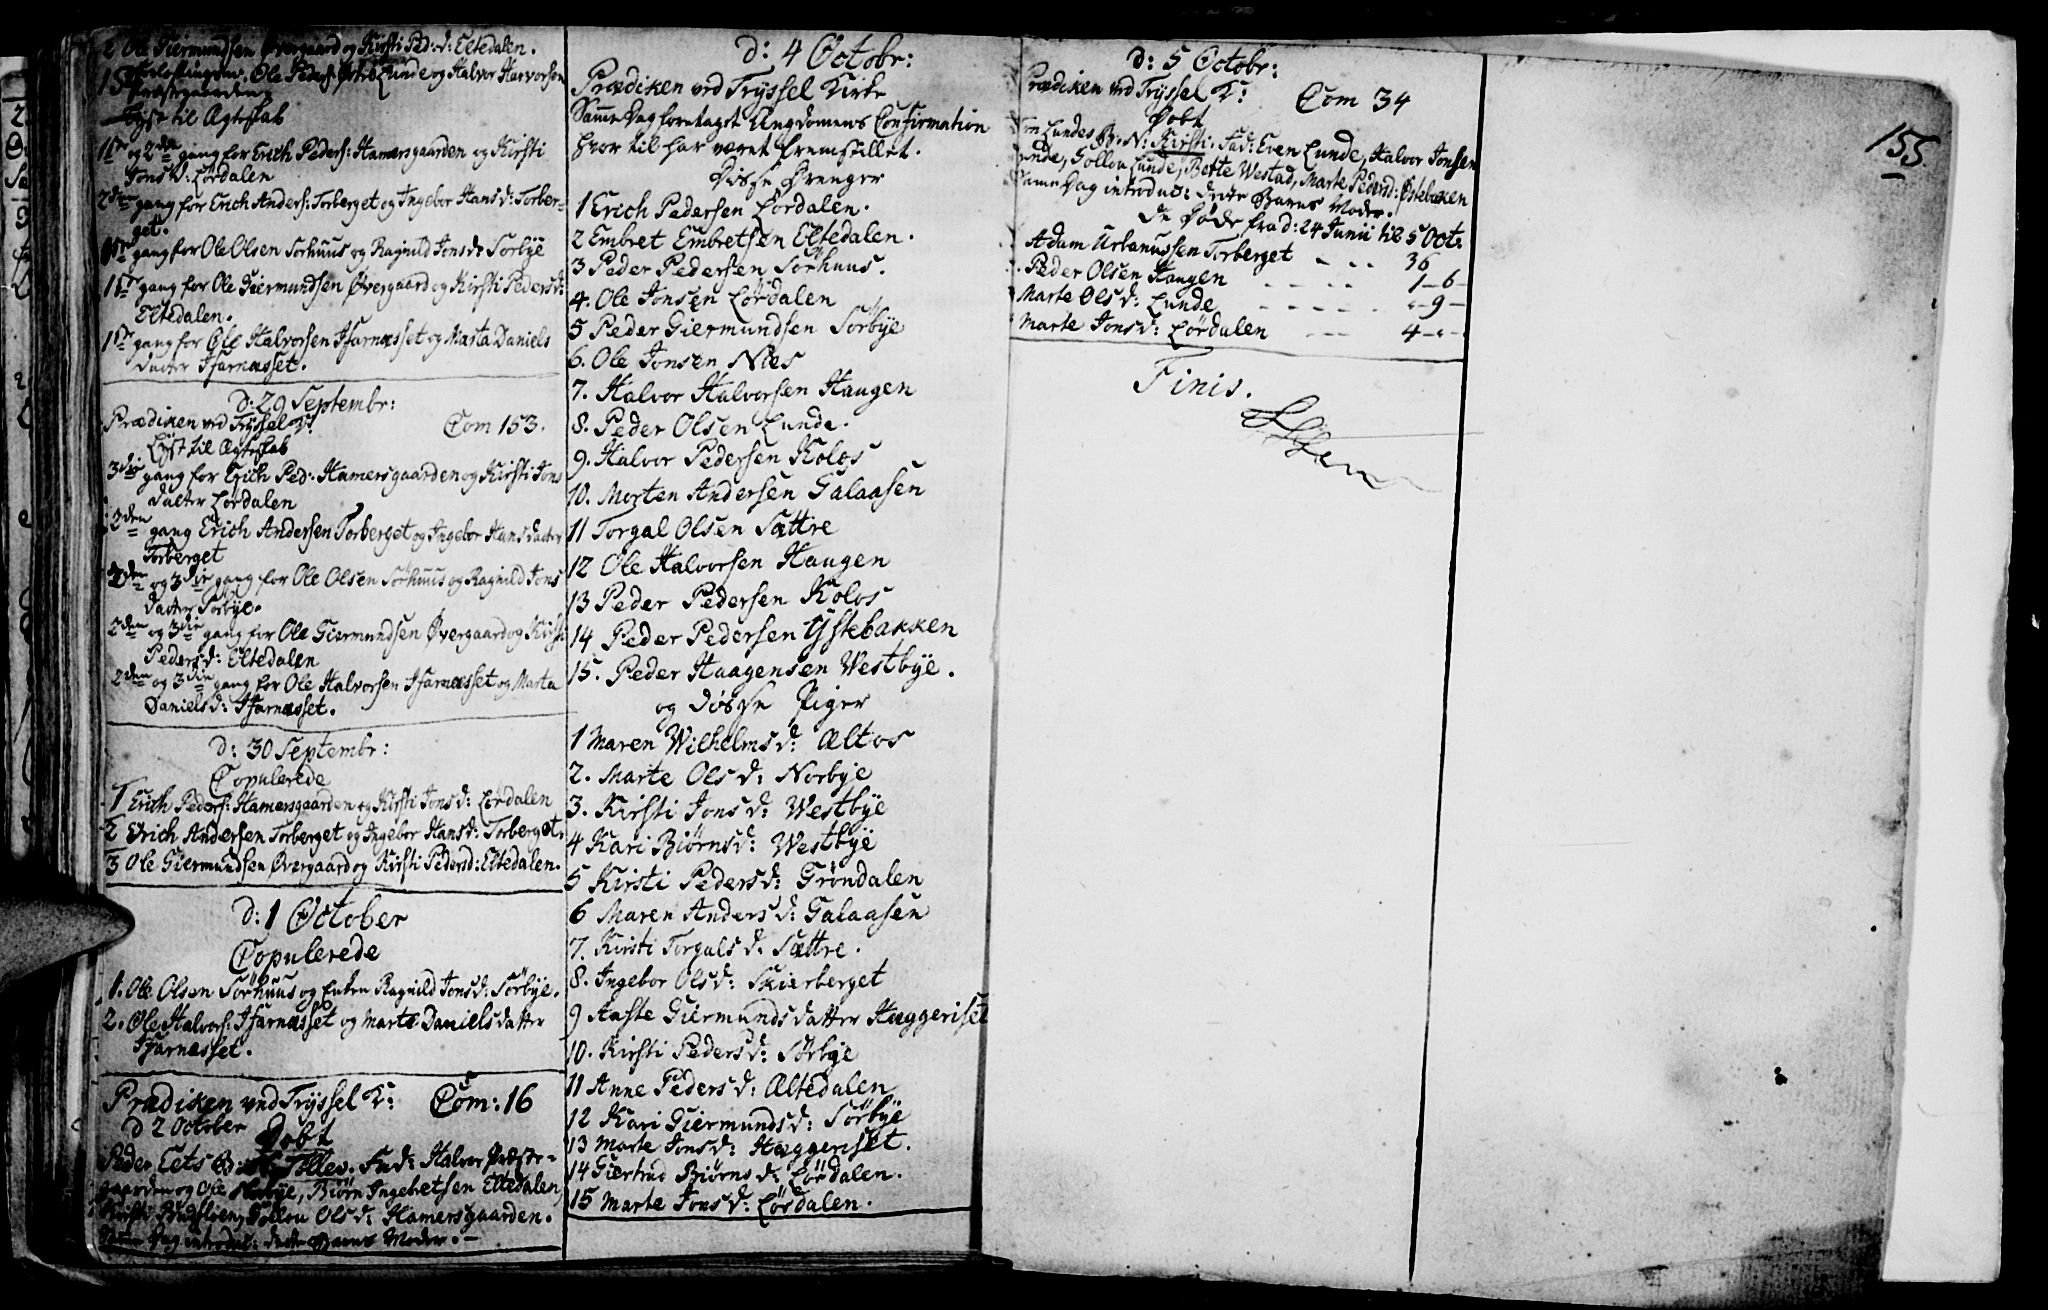 2 Ole Giermundsen Øvergaard og Kirsti Ped: d: Eltedalen.
15 Forlofningsm. Ole Peders: Østre Lunde og Halvor Harvorsen
Præstgaarden
Lyst til Ægteskab
1ste og 2den gang for Erich Peders: Hamersgaarden og Kirsti
Jons d: Lördalen
2den gang for Erich Anders: Torberget og Ingebor Hans d: Torber-
get.
1ste gang for Ole Olsen Sorhuus og Ragnild Jons d: Sorbÿe
1ste gang for Ole Giermundsen Øvergaard og Kirsti Peders d:
Eltedalen.
1ste gang for Ole Halvorsen Jfarnæsset og Marta Daniels
datter Jfarnæsset.
d: 29 Septembr:
Prædiken ved Trÿssel K: Com 153.
Lyst til Ægteskab
3die gang for Erich Ped: Hamersgaarden og Kirsti Jons
datter Lördalen
3den gang Erich Andersen Torberget og Ingebor Hans datter
Torberget
2den og 3die gang for Ole Olsen Sörhuus og Ragnild Jons
datter Sorbÿe.
2den og 3die gang for Ole Giermundsen Øvergaard og Kirsti
Peders d: Eltedalen
2den og 3die gang for Ole Halvorsen Jfarnæsset og Marta
Daniels d: Jfarnæsset.
d: 30 Septembr:
Copulerede
1 Erich Peders: Hamersgaarden og Kirsti Jons d: Lördalen
2 Erich Andersen Torberget og Ingebor Hans d: Torberget.
3 Ole Giermundsen Øvergaard og Kirsti Peders d: Eltedalen.
d: 1 October
Copulerede
1. Ole Olsen Sörhuus og Enken Ragnild Jons d: Sörbÿe.
2. Ole Halvors: Jfarnæsset og Marte Daniels datter
Jfarnæsset.
Prædiken ved Trÿssel K: Com: 16
d 2 October Døbt
Peder Eets B: N: Tollev. Fad: Halvor Præste-
gaarden og Ole Norbÿe, Biørn Ingebretsen Eltedalen,
Kirsti Gollou Ols d: Hamersgaarden.
Same Dag introduc: dette Barns Moder.
d: 4 Octobr:
Prædiken ved Trÿssel Kirke
Same Dag foretaget Ungdomens Confirmation
hvor til har været fremstillet.
Disse Drenger
1 Erich Pedersen Lördalen.
2 Embret Embretsen Eltedalen.
3 Peder Pedersen Sörhuus.
4. Ole Jonsen Lördalen
5 Peder Giermundsen Sörbÿe
6. Ole Jonsen Næs
7. Halvor Halvorsen Haugen
8. Peder Olsen Lunde.
9. Halvor Pedersen Kolos
10. Morten Andersen Galaasen
11 Torgal Olsen Sættre
12 Ole Halvorsen Haugen
13 Peder Pedersen Kolos
14 Peder Pedersen Ÿstebakken
15. Peder Haagensen Westbÿe.
og disse Piger
1 Maren Wilhelms d: Æltos
2. Marte Ols d: Norbÿe
3. Kirsti Jons d: Westbÿe
4 Kari Biörns d: Westbÿe
5 Kirsti Peders d: Gröndalen
6 Maren Anders d: Galaasen
7. Kirsti Torgals d. Sættre.
8. Ingebor Ols d: Skierberget
9 Aaste Giermunds datter Haggeriset
10. Kirsti Peders d: Sörbÿe
11 Anne Peders d: Æltedalen
12 Kari Giermunds d: Sörbÿe
13 Marte Jons d: Haggeriset.
14 Giertrud Biörns d: Lördalen.
15 Marte Jons d: Lördalen.
d: 5 Octobr:
Prædiken ved Trÿssel K: Com 34
Døbt
Lundes B: N: Kirsti. Fad: Even Lunde, Halvor Jonsen
Lunde, Gollou Lunde, Berte Westad, Marte Peders d: Östebacken
Same Dag introduc: dette Barns Moder.
De Døde fra d: 24 Junii til 5 Oct.
Adam Urbanussen Torberget - - - 36
Peder Olsen Haugen - - - - 1-6-
Marte Ols d: Lunde - - - - - "-9-
Marte Jons d: Lördalen - - - 4-"-
Finis.
155